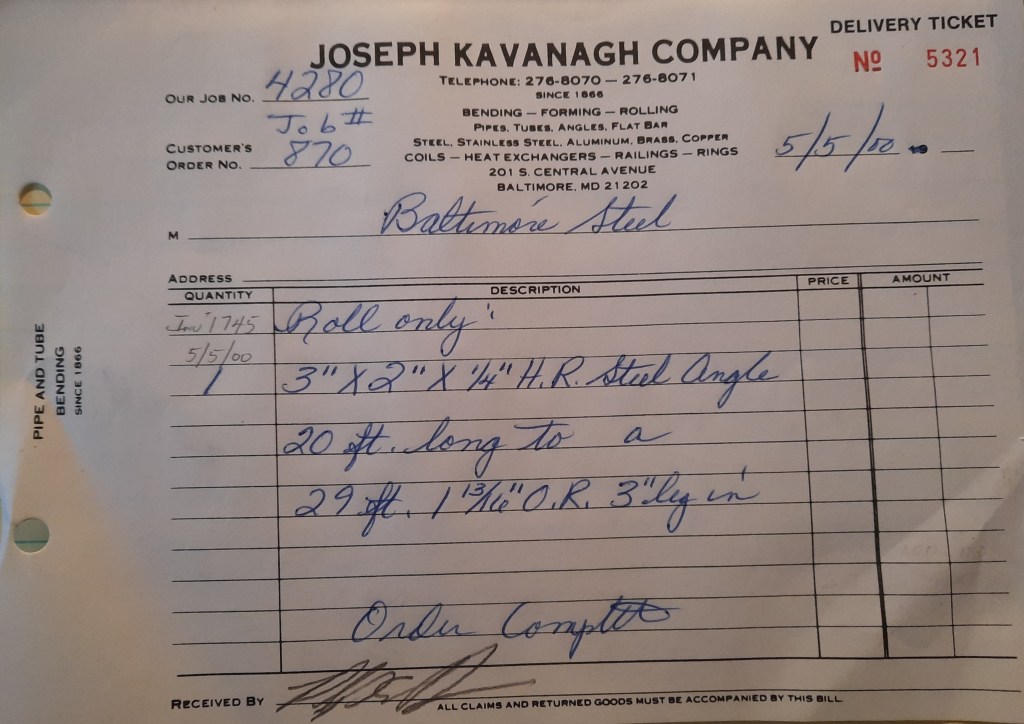 DELIVERY TICKET
JOSEPH KAVANAGH COMPANY
Nº 5321
TELEPHONE: 276-8070 — 276-8071
SINCE 1866
OUR JOB NO. 4280
BENDING — FORMING — ROLLING
PIPES, TUBES, ANGLES, FLAT BAR
STEEL, STAINLESS STEEL, ALUMINUM, BRASS, COPPER
COILS — HEAT EXCHANGERS — RAILINGS — RINGS
201 S. CENTRAL AVENUE
BALTIMORE, MD 21202
Job #
CUSTOMER'S
ORDER NO. 870
5/5/00
M Baltimore Steel
ADDRESS
QUANTITY DESCRIPTION PRICE AMOUNT
Inv# 1745 Roll only:
5/5/00
1 3" X 2" X 1/4" H.R. Steel Angle
20 ft. long to a
29 ft. 1 13/16" O.R. 3" leg in
Order Complete
RECEIVED BY
ALL CLAIMS AND RETURNED GOODS MUST BE ACCOMPANIED BY THIS BILL
PIPE AND TUBE
BENDING
SINCE 1866